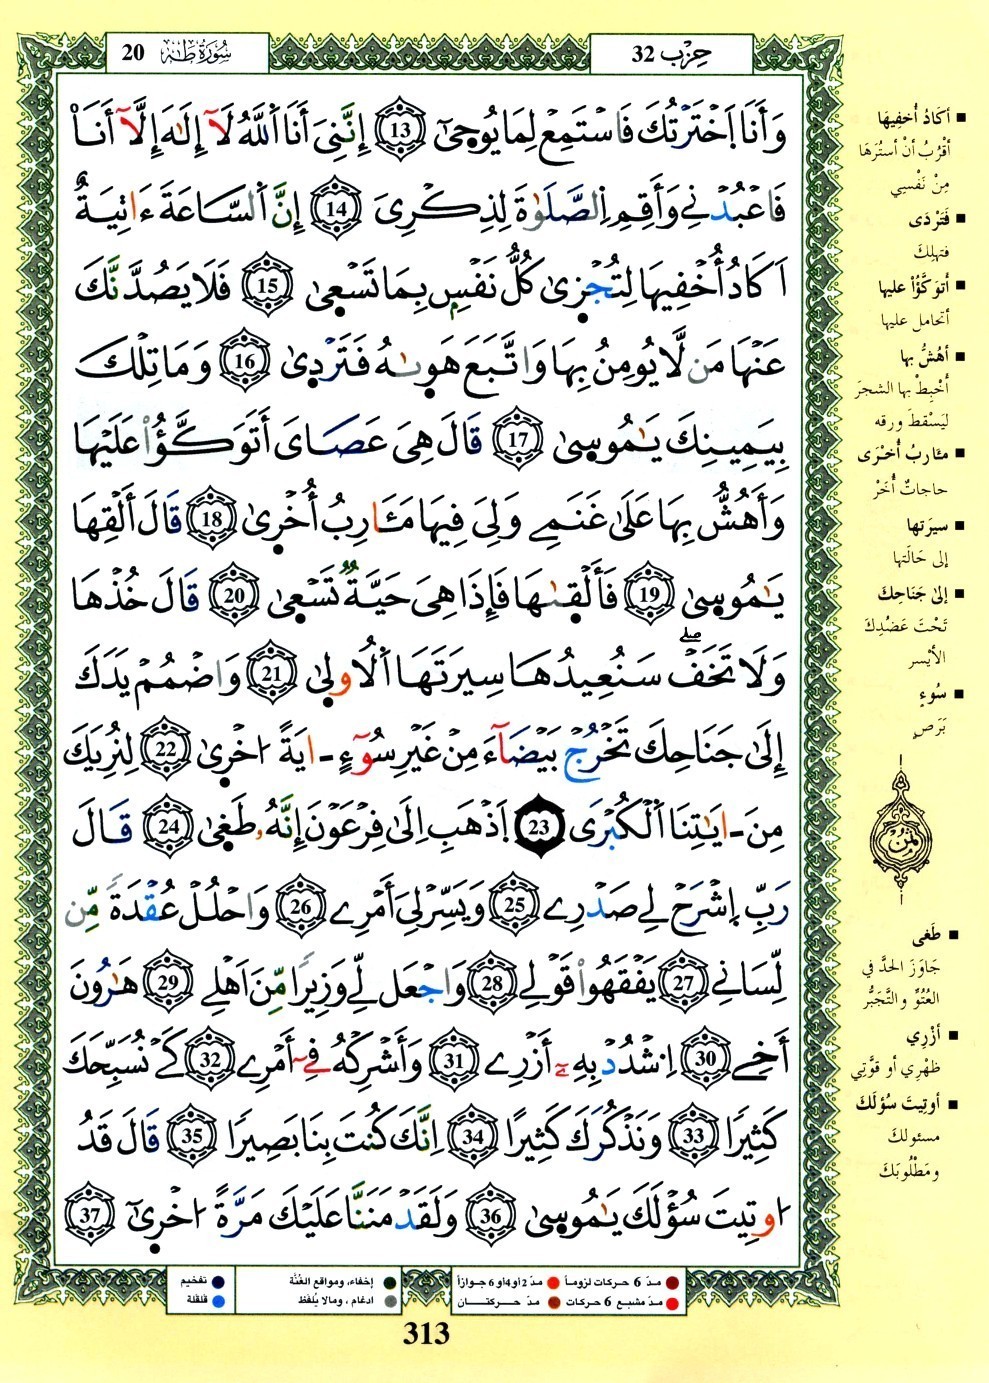 حِزْب 32
سُورَةُ طَهَ 20
وَأَنَا اَخْتَرْتُكَ فَاسْتَمِعْ لِمَا يُوحَىٰٓ 13 إِنَّنِيَ أَنَا اَللَّهُ لَآ إِلَٰهَ إِلَّآ أَنَا۠
فَاعْبُدْنِے وَأَقِمِ اِلصَّلَوٰةَ لِذِكْرِيَ 14 إِنَّ اَلسَّاعَةَ ءَاتِيَةٌ
اَكَادُ أُخْفِيهَا لِتُجْزَىٰ كُلُّ نَفْسٍۢ بِمَا تَسْعَىٰ 15 فَلَا يَصُدَّنَّكَ
عَنْهَا مَن لَّا يُومِنُ بِهَا وَاتَّبَعَ هَوَىٰهُ فَتَرْدَىٰ 16 وَمَا تِلْكَ
بِيَمِينِكَ يَٰمُوسَىٰ 17 قَالَ هِيَ عَصَايَ أَتَوَكَّؤُاْ عَلَيْهَا
وَأَهُشُّ بِهَا عَلَىٰ غَنَمِے وَلِيَ فِيهَا مَـَٔارِبُ أُخْرَىٰ 18 قَالَ أَلْقِهَا
يَٰمُوسَىٰ 19 فَأَلْقَىٰهَا فَإِذَا هِيَ حَيَّةٌ تَسْعَىٰ 20 قَالَ خُذْهَا
وَلَا تَخَفْۖ سَنُعِيدُهَا سِيرَتَهَا اَلُاولَىٰ 21 وَاضْمُمْ يَدَكَ
إِلَىٰ جَنَاحِكَ تَخْرُجْ بَيْضَآءَ مِنْ غَيْرِ سُوٓءٍ ـ ايَةً اخْرَىٰ 22 لِنُرِيَكَ
مِنَ ـ ايَٰتِنَا اَلْكُبْرَى 23 اَذْهَبِ اِلَىٰ فِرْعَوْنَ إِنَّهُۥ طَغَىٰ 24 قَالَ
رَبِّ اِشْرَحْ لِے صَدْرِے 25 وَيَسِّرْ لِيَ أَمْرِے 26 وَاحْلُلْ عُقْدَةً مِّن
لِّسَانِے 27 يَفْقَهُواْ قَوْلِے 28 وَاجْعَل لِّے وَزِيرًا مِّنَ اَهْلِے 29 هَٰرُونَ
أَخِے 30 اِشْدُدْ بِهِۦٓ أَزْرِے 31 وَأَشْرِكْهُ فِےٓ أَمْرِے 32 كَےْ نُسَبِّحَكَ
كَثِيرًا 33 وَنَذْكُرَكَ كَثِيرًا 34 اِنَّكَ كُنتَ بِنَا بَصِيرًا 35 قَالَ قَدُ
اوتِيتَ سُؤْلَكَ يَٰمُوسَىٰ 36 وَلَقَدْ مَنَنَّا عَلَيْكَ مَرَّةً اخْرَىٰٓ 37
■ أكَادُ أُخفِيهَا
أقْرُبُ أنْ أستُرَهَا
مِنْ نَفْسِي
■ فَتَرْدَى
فتهلِكَ
■ أتوَكَّؤُاْ عليها
أتحامل عليها
■ أهُشُّ بها
أُخْبِطُ بها الشجرَ
ليَسْقطَ ورقه
■ مئاربُ أُخرَى
حاجاتٌ أُخَرْ
■ سيرَتها
إلى حَالَتها
■ إلىٰ جَنَاحِكَ
تَحْتَ عَضُدِكَ
الأيْسر
■ سُوءٍ
بَرَصٍ
ثُمُن
■ طَغَى
جَاوَزَ الحدَّ في
العُتُوِّ والتَّجَبُّر
■ أزْرِي
ظهْرِي أو قوَّتِي
■ أوتِيتَ سُؤلَكَ
مسئولكَ
ومَطْلُوبَكَ
مدّ 6 حركات لزوماً
مدّ 2 أو 4 أو 6 جوازاً
إخفاء، ومواقع الغُنَّة
تفخيم
مدّ مشبع 6 حركات
مدّ حركتان
ادغام ، ومالا يُلفَظ
قلقلة
313